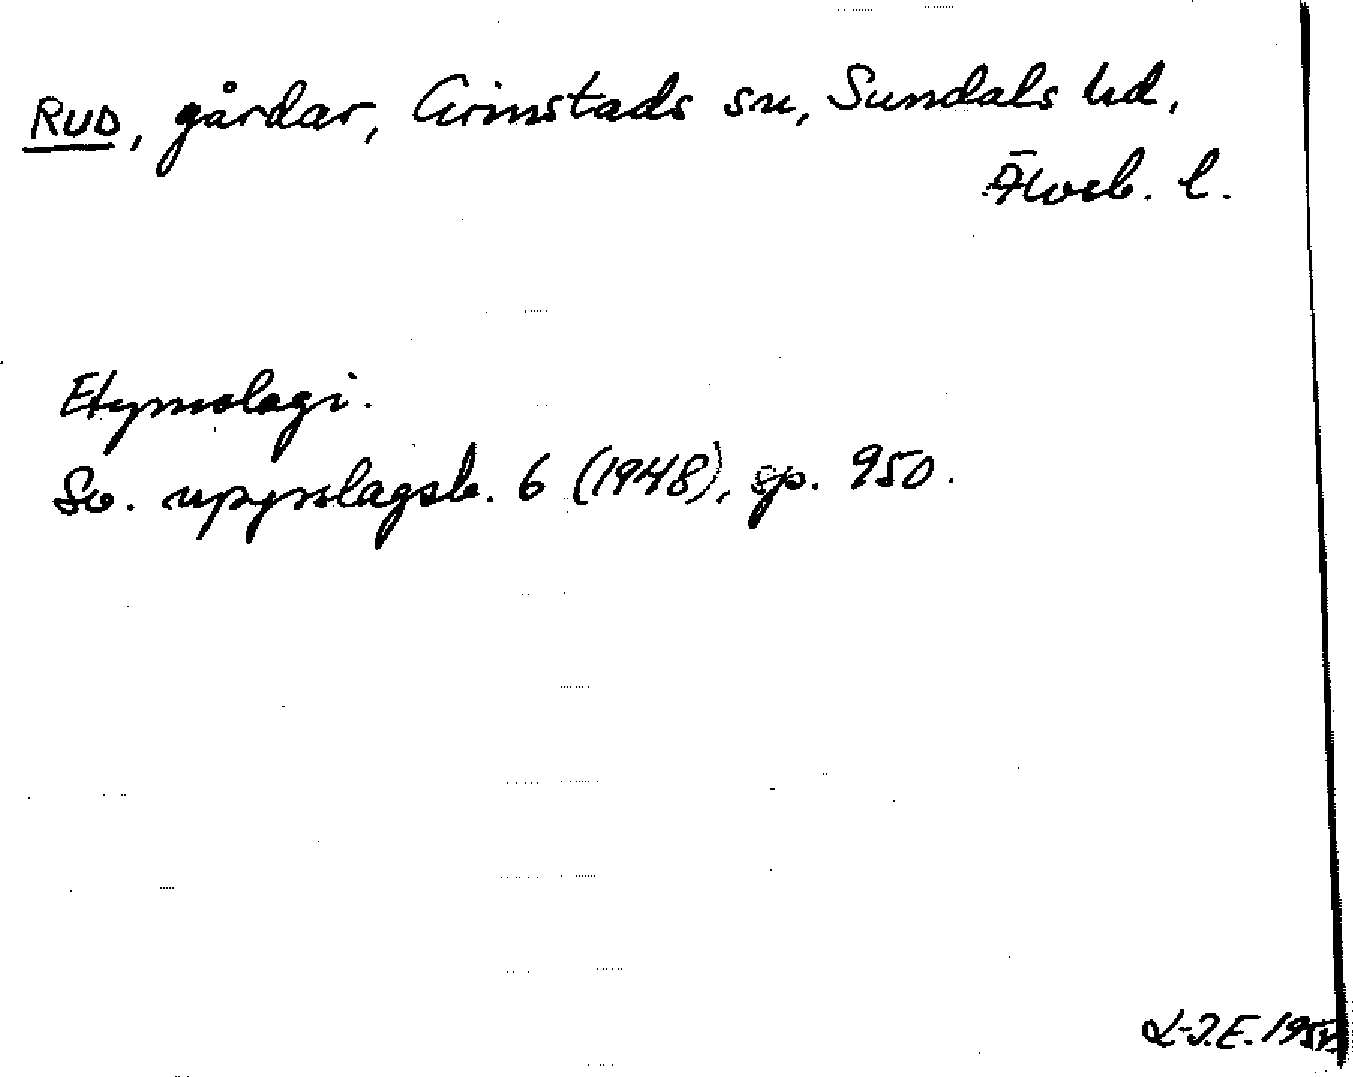 RUD, gårdar, Grinstads sn, Sundals hd,
Älvsb. l.
Etymologi.
Sv. uppslagsb. 6 (1948), sp. 950.